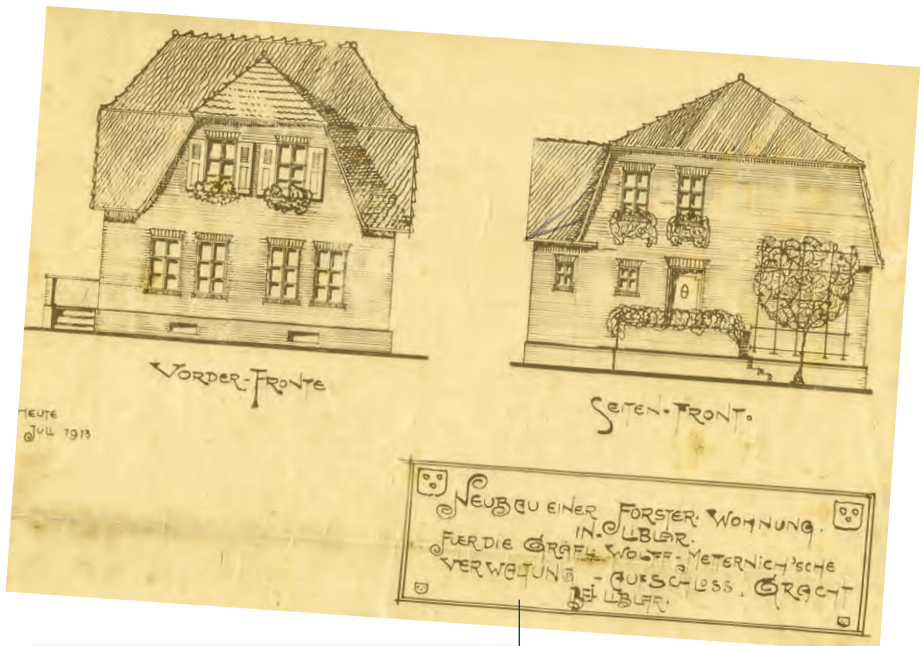 VORDER-FRONTE
SEITEN-FRONT.
HEUTE
JULI 1913
NEUBAU EINER FORSTER-WOHNUNG.
IN LIBLAR.
FUER DIE GRÄFL. WOLFF-METTERNICH'SCHE
VERWALTUNG - AUF SCHLOSS GRACHT
BEI LIBLAR.